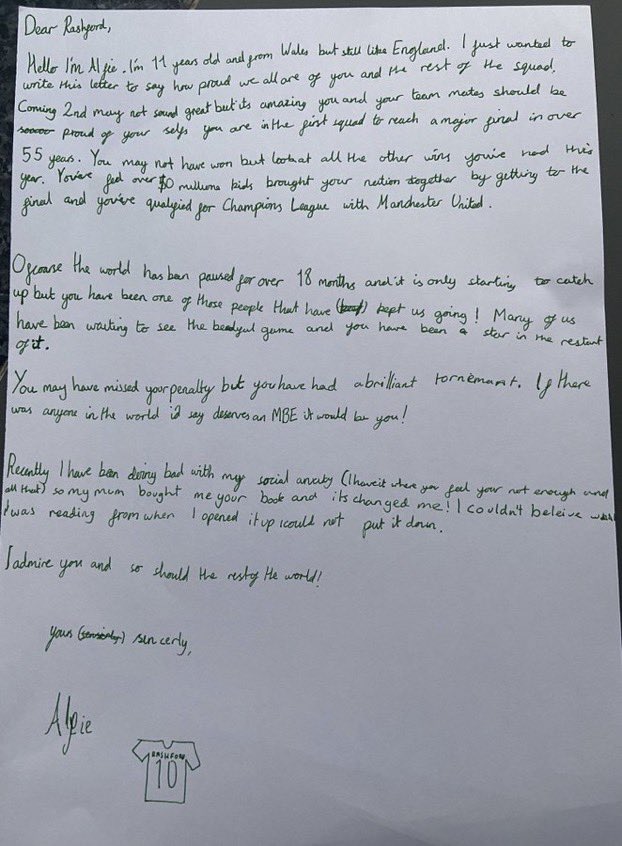 Dear Rashford,
Hello I'm Alfie. I'm 11 years old and from Wales but still like England. I just wanted to
write this letter to say how proud we all are of you and the rest of the squad.
Coming 2nd may not sound great but its amazing you and your team mates should be
proud of your selfs you are in the first squad to reach a major final in over
55 years. You may not have won but look at all the other wins you've had this
year. You've feed over $0 millions kids brought your nation together by getting to the
final and you've qualyfied for Champions League with Manchester United.
Ofcourse the world has been paused for over 18 months and it is only starting to catch
up but you have been one of those people that have kept us going! Many of us
have been waiting to see the beatyful game and you have been a star in the restart
of it.
You may have missed your penalty but you have had a brilliant tornemant. If there
was anyone in the world i'd say deserves an MBE it would be you!
Recently I have been doing bad with my social anxity (I have it where you feel your not enough and
all that) so my mum bought me your book and its changed me! I couldn't beleive what
I was reading from when I opened it up i could not put it down.
I admire you and so should the rest of the world!
yours sincerly,
Alfie
RASHFORD
10